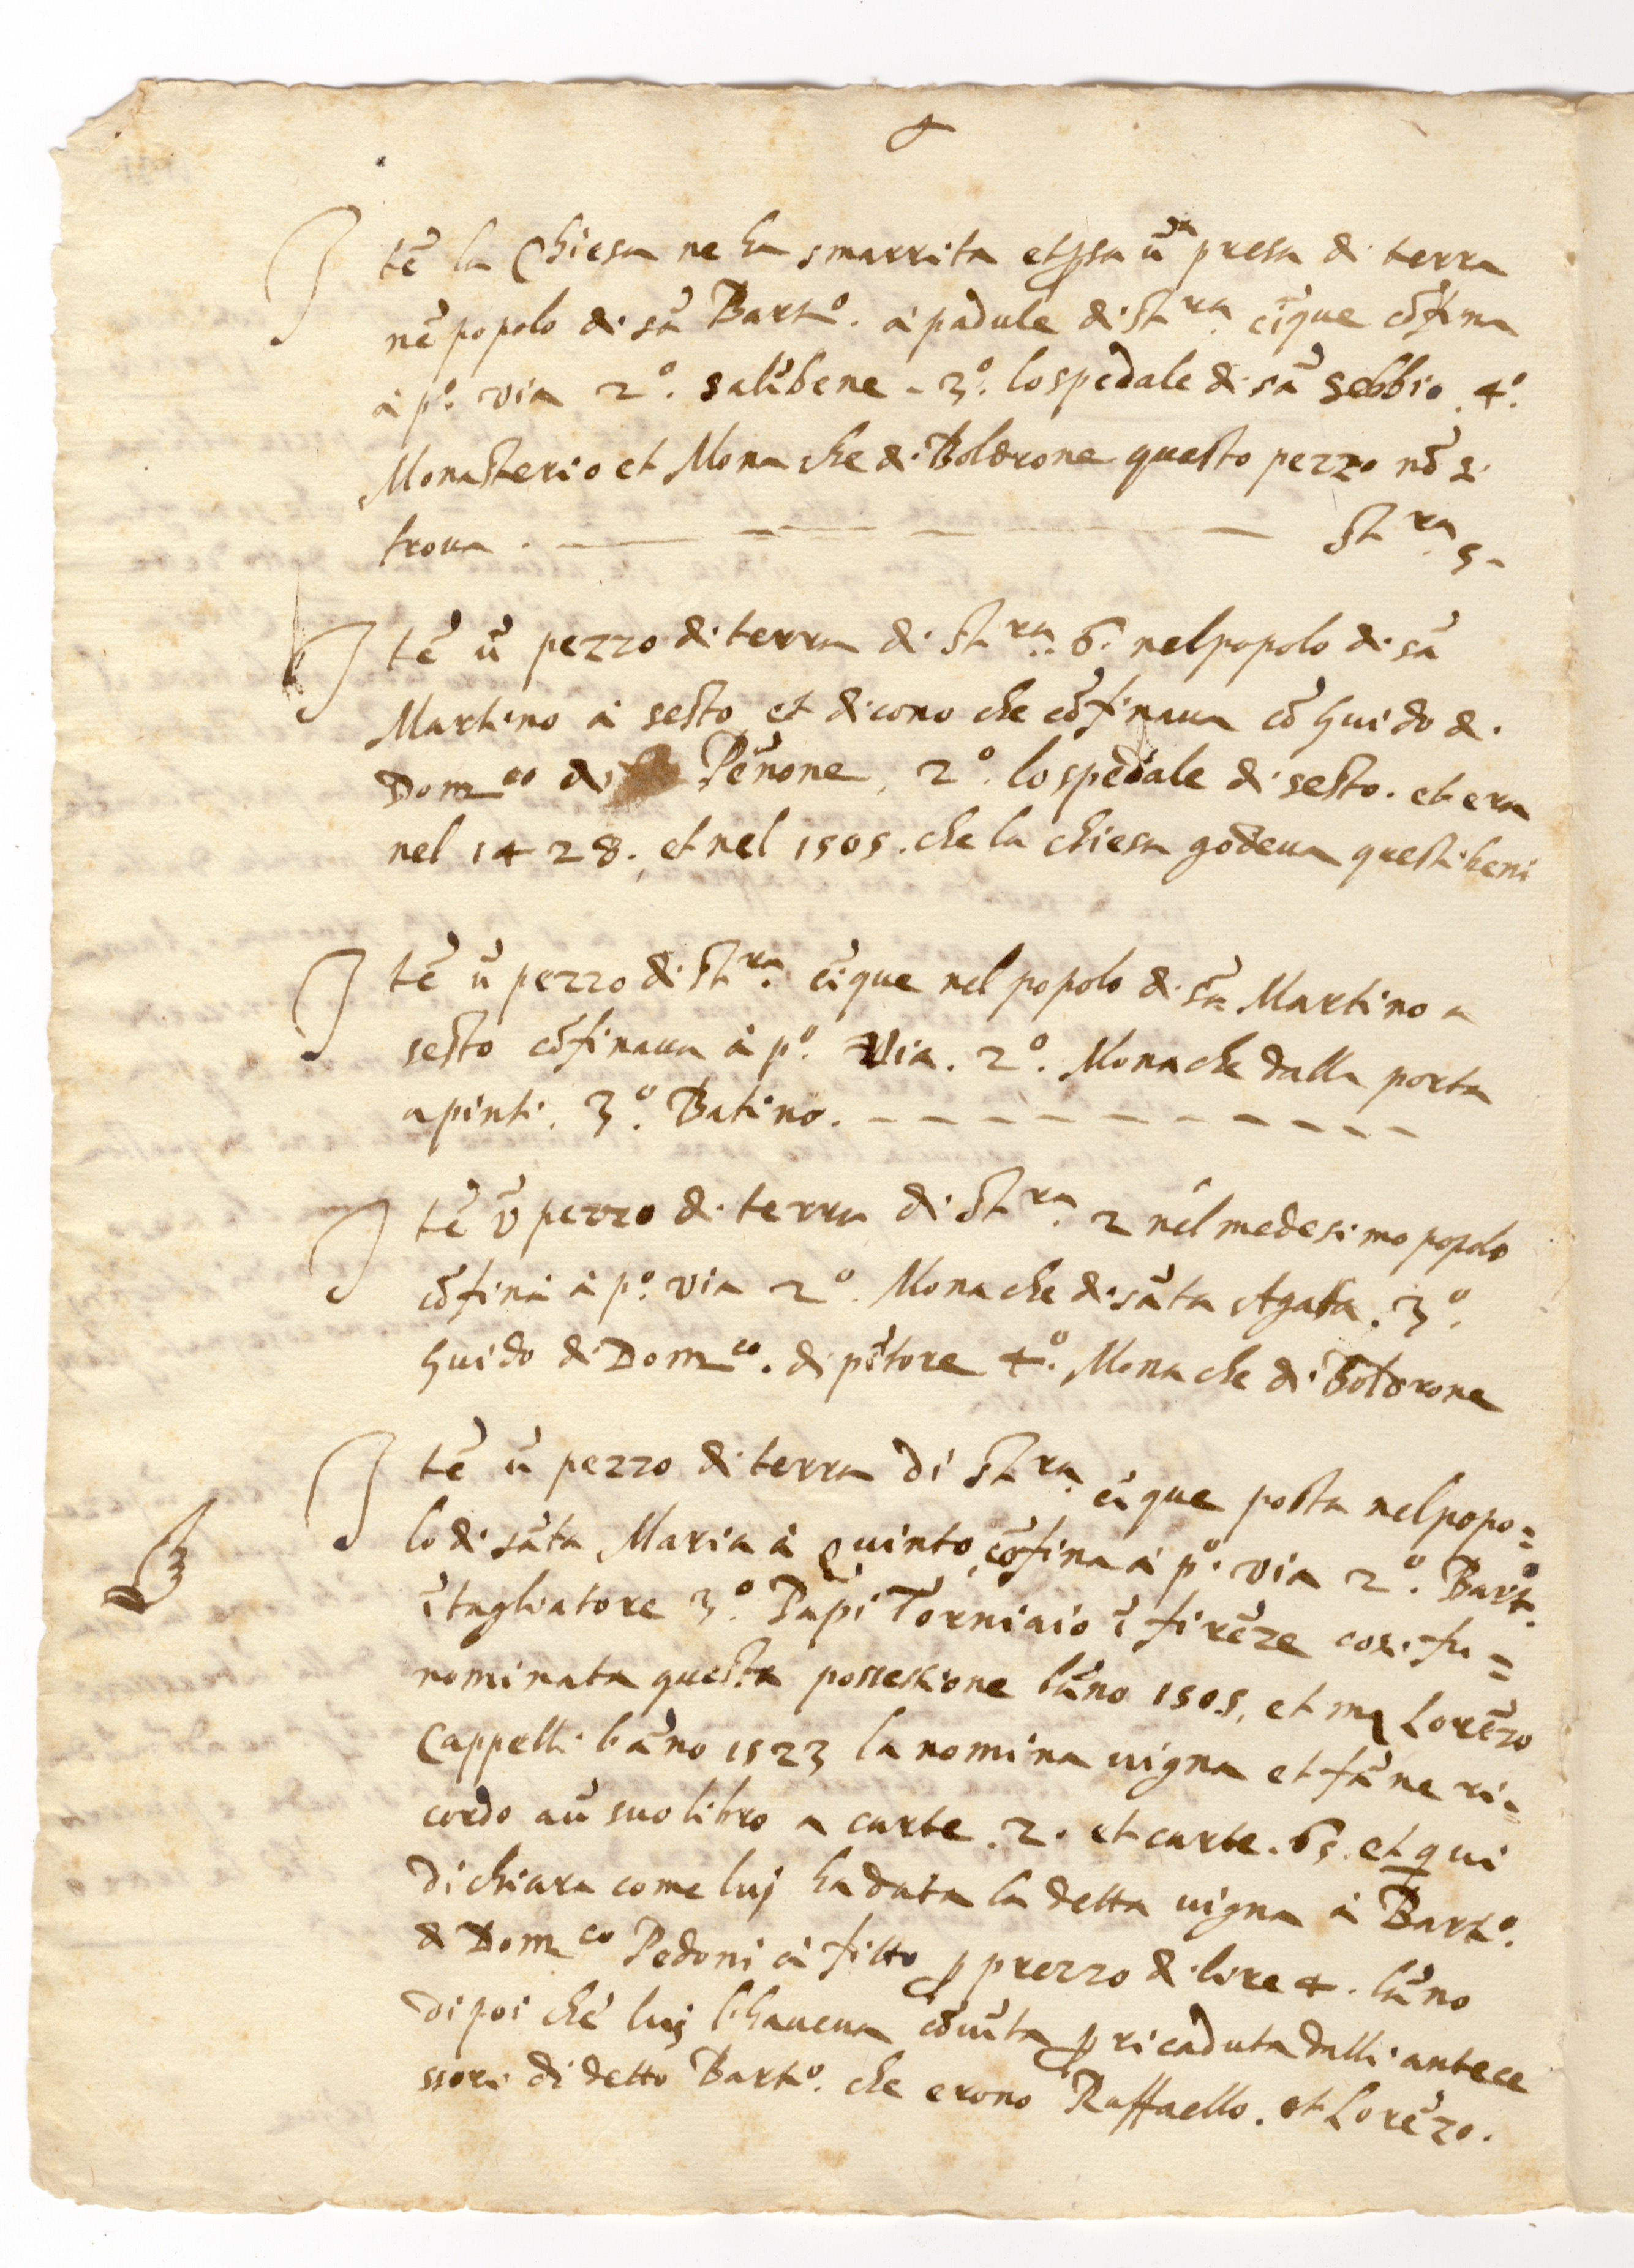 Itē la Chiesa ne ha smarrita et psa ūa presa di terra
nē popolo di sā Bartº. à padule di stra. cīque cōfina
à pº. via 2º. salībene - 3º. lospedale di sā Sebbio. 4º.
Monasterio et Monache di Boldrone questo pezzo nō si
troua . — — — — — Stra. 5-
Itē ū pezzo di terra di stra. 6. nel popolo di sā
Martino à sesto et dicono che cōfinaua cō Guido di
Domco di Pēnone, 2º. lospedale di sesto. et era
nel 1428. et nel 1505. che la chiesa godeua questi beni
Itē ū pezzo di stra. cīque nel popolo di sā Martino a
sesto cōfinaua à pº. Via. 2º. Monache dalla porta
a pinti. 3º. Batino. — — — — — — — — — —
Itē ū pezzo di terra di stra. 2 nel medesimo popolo
cōfina à pº. via 2º. Monache di sāta Agata. 3º.
Guido di Domco. di pītore 4º. Monache di Boldrone
Itē ū pezzo di terra di stra. cīque posta nel popo=
lo di sāta Maria à Quinto, cōfina à pº. via 2º. Bartº.
ītagliatore 3º. Papi Torniaio ī firēze cosi fu =
nominata questa possessione lāno 1505, et mꝫ Lorēzo
Cappelli lāno 1523 la nomina uigna et fāne ri=
cordo aū suo libro a carte. 2. et carte. 65. et qui
dichiara come luj ha data la detta uigna à Bartº.
di Domco Pedoni à fitto ꝑ prezzo di lire 4. lāno
dipoi che luj lhaueua cōuīta ꝑ ricaduta dalli antece
ssori di detto Bartº. che erono Raffaello. et Lorēzo.